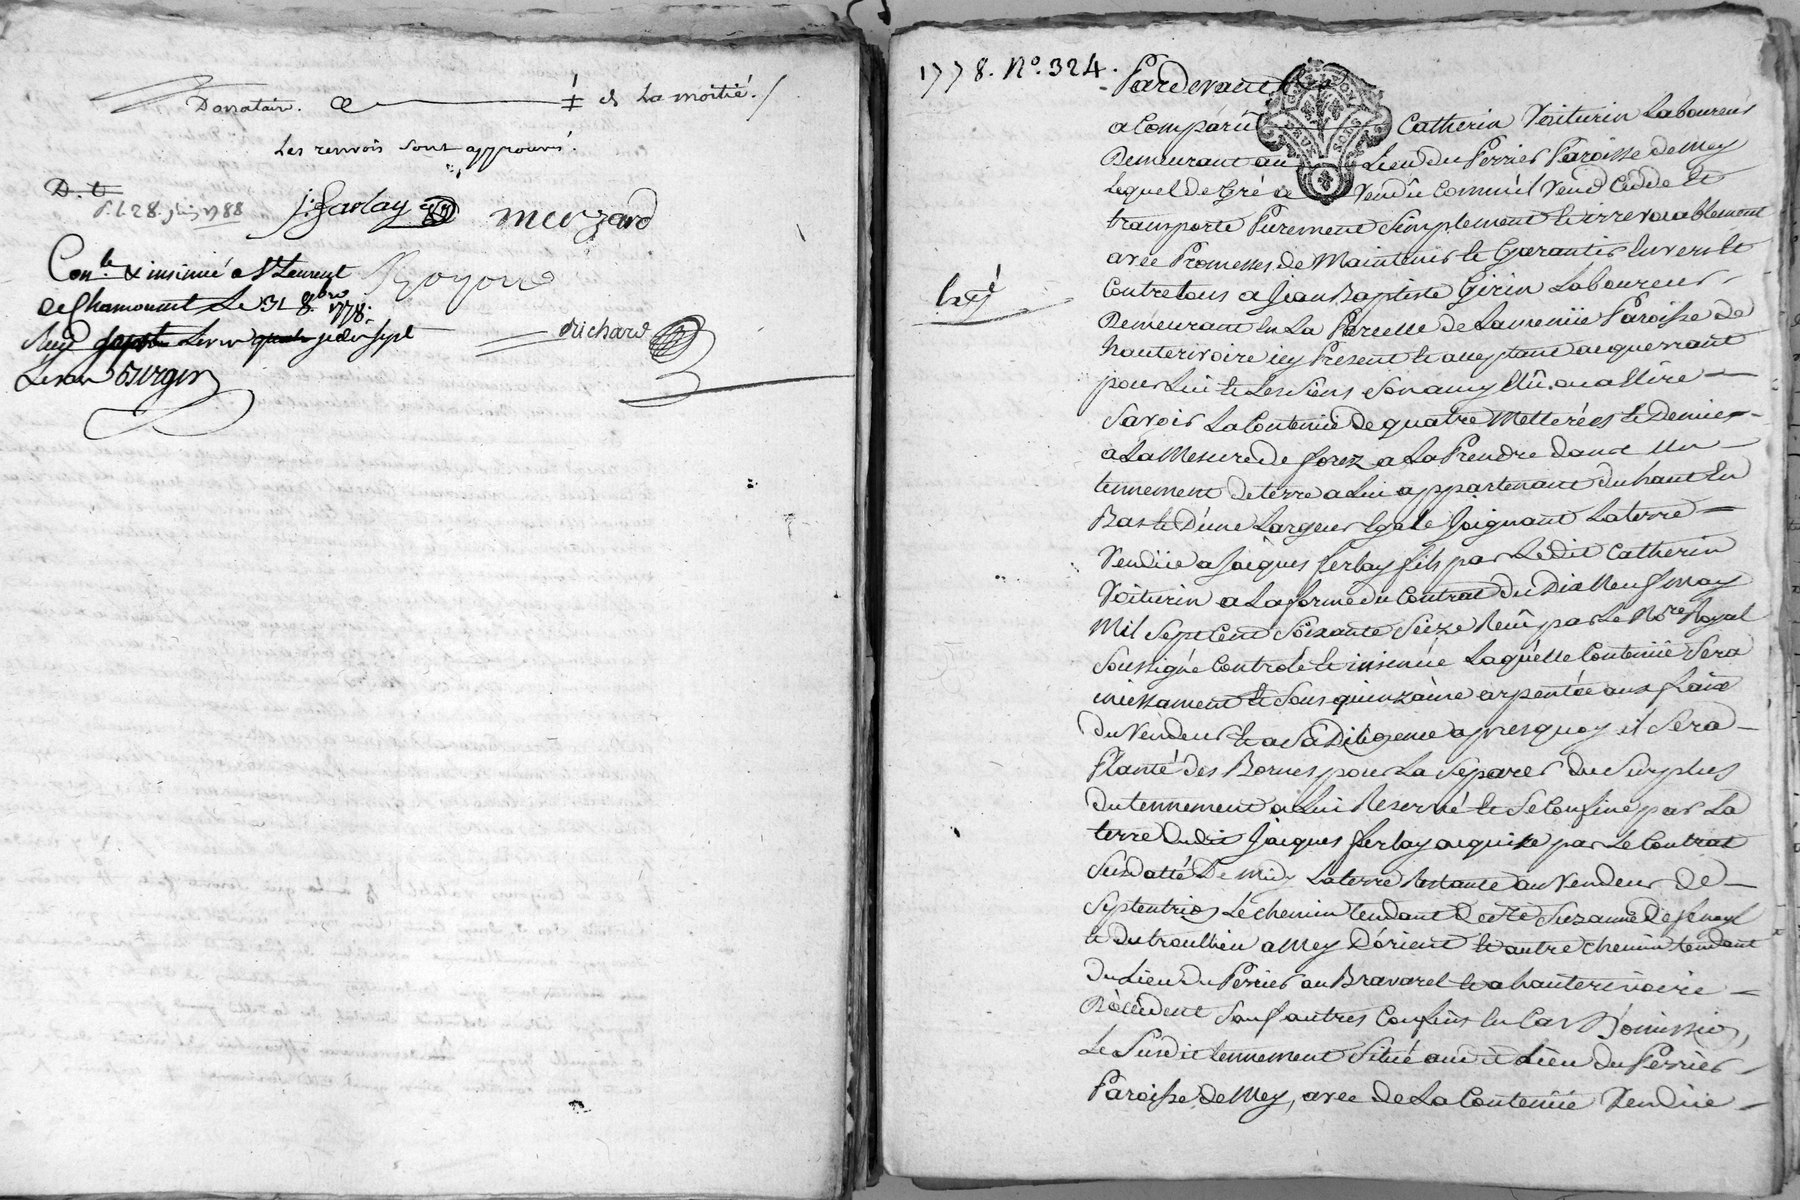 Donatair. ce ‡ et La moitié./
Les renvois sont approuvés.
D. t.
J: ferlay mey zard
Con.le & insinué a St Laurent
de Chamousset Le 31 8.bre 1778.
Reçu Livre sept
Royon
Richard
1778. No. 324.
Pardevant
GEN. LYON
DEUX SOLS
a Comparû Catherin Voiturin Laboureur
Demeurant au Lieu du Perrier Paroisse de Mey
Lequel de Gré a Vendû Comme il Vend Cedde Et
transporte Purement Simplement Et irrevocablement
avec Promesses de Maintenir Et Garantir Envers Et
Contre tous a Jean Baptiste Girin Laboureur
Demeurant En La Parcelle de Lamenüe Paroisse de
hauterivoire icy Present Et acceptant acquerrant
pour Lui Et Les Siens Son amy Elû ou a Elire
Savoir La Contenüe de quatre Metterées Et Demie
a La Mesure de forez a La Prendre dans Un
tennement de terre a Lui appartenant du haut En
Bas Et D'une Largeur Egale Joignant La terre
Vendüe a Jacques ferlay fils par Ledit Catherin
Voiturin a La forme du Contrat du Dix Neuf may
Mil Sept Cent Soixante Seize Reçû par Le No.re Royal
Soussigné Controlé Et insinüé Laquelle Contenüe Sera
incessament Et Sous quinzaine arpentée aux fraix
Du Vendeur Et a Sa Diligence apres quoy il Sera
Planté des Bornes pour La Separer du Surplus
Du tennement a Lui Reservé Et Se Confine par La
terre Dudit Jacques ferlay acquise par Le Contrat
Susdatté De midy La terre Restante au Vendeur de
Septentrion Le chemin tendant de Ste Suzanne
Et Du troullieu a Mey D'orient Et autre chemin tendant
Du Lieu du Perrier au Bravarel Et a hauterivoire
D'occident Sauf autres Confins En Cas D'omission,
Le Susdit tennement Situé audit Lieu du Perrier
Paroisse de Mey, avec de La Contenüe Vendüe